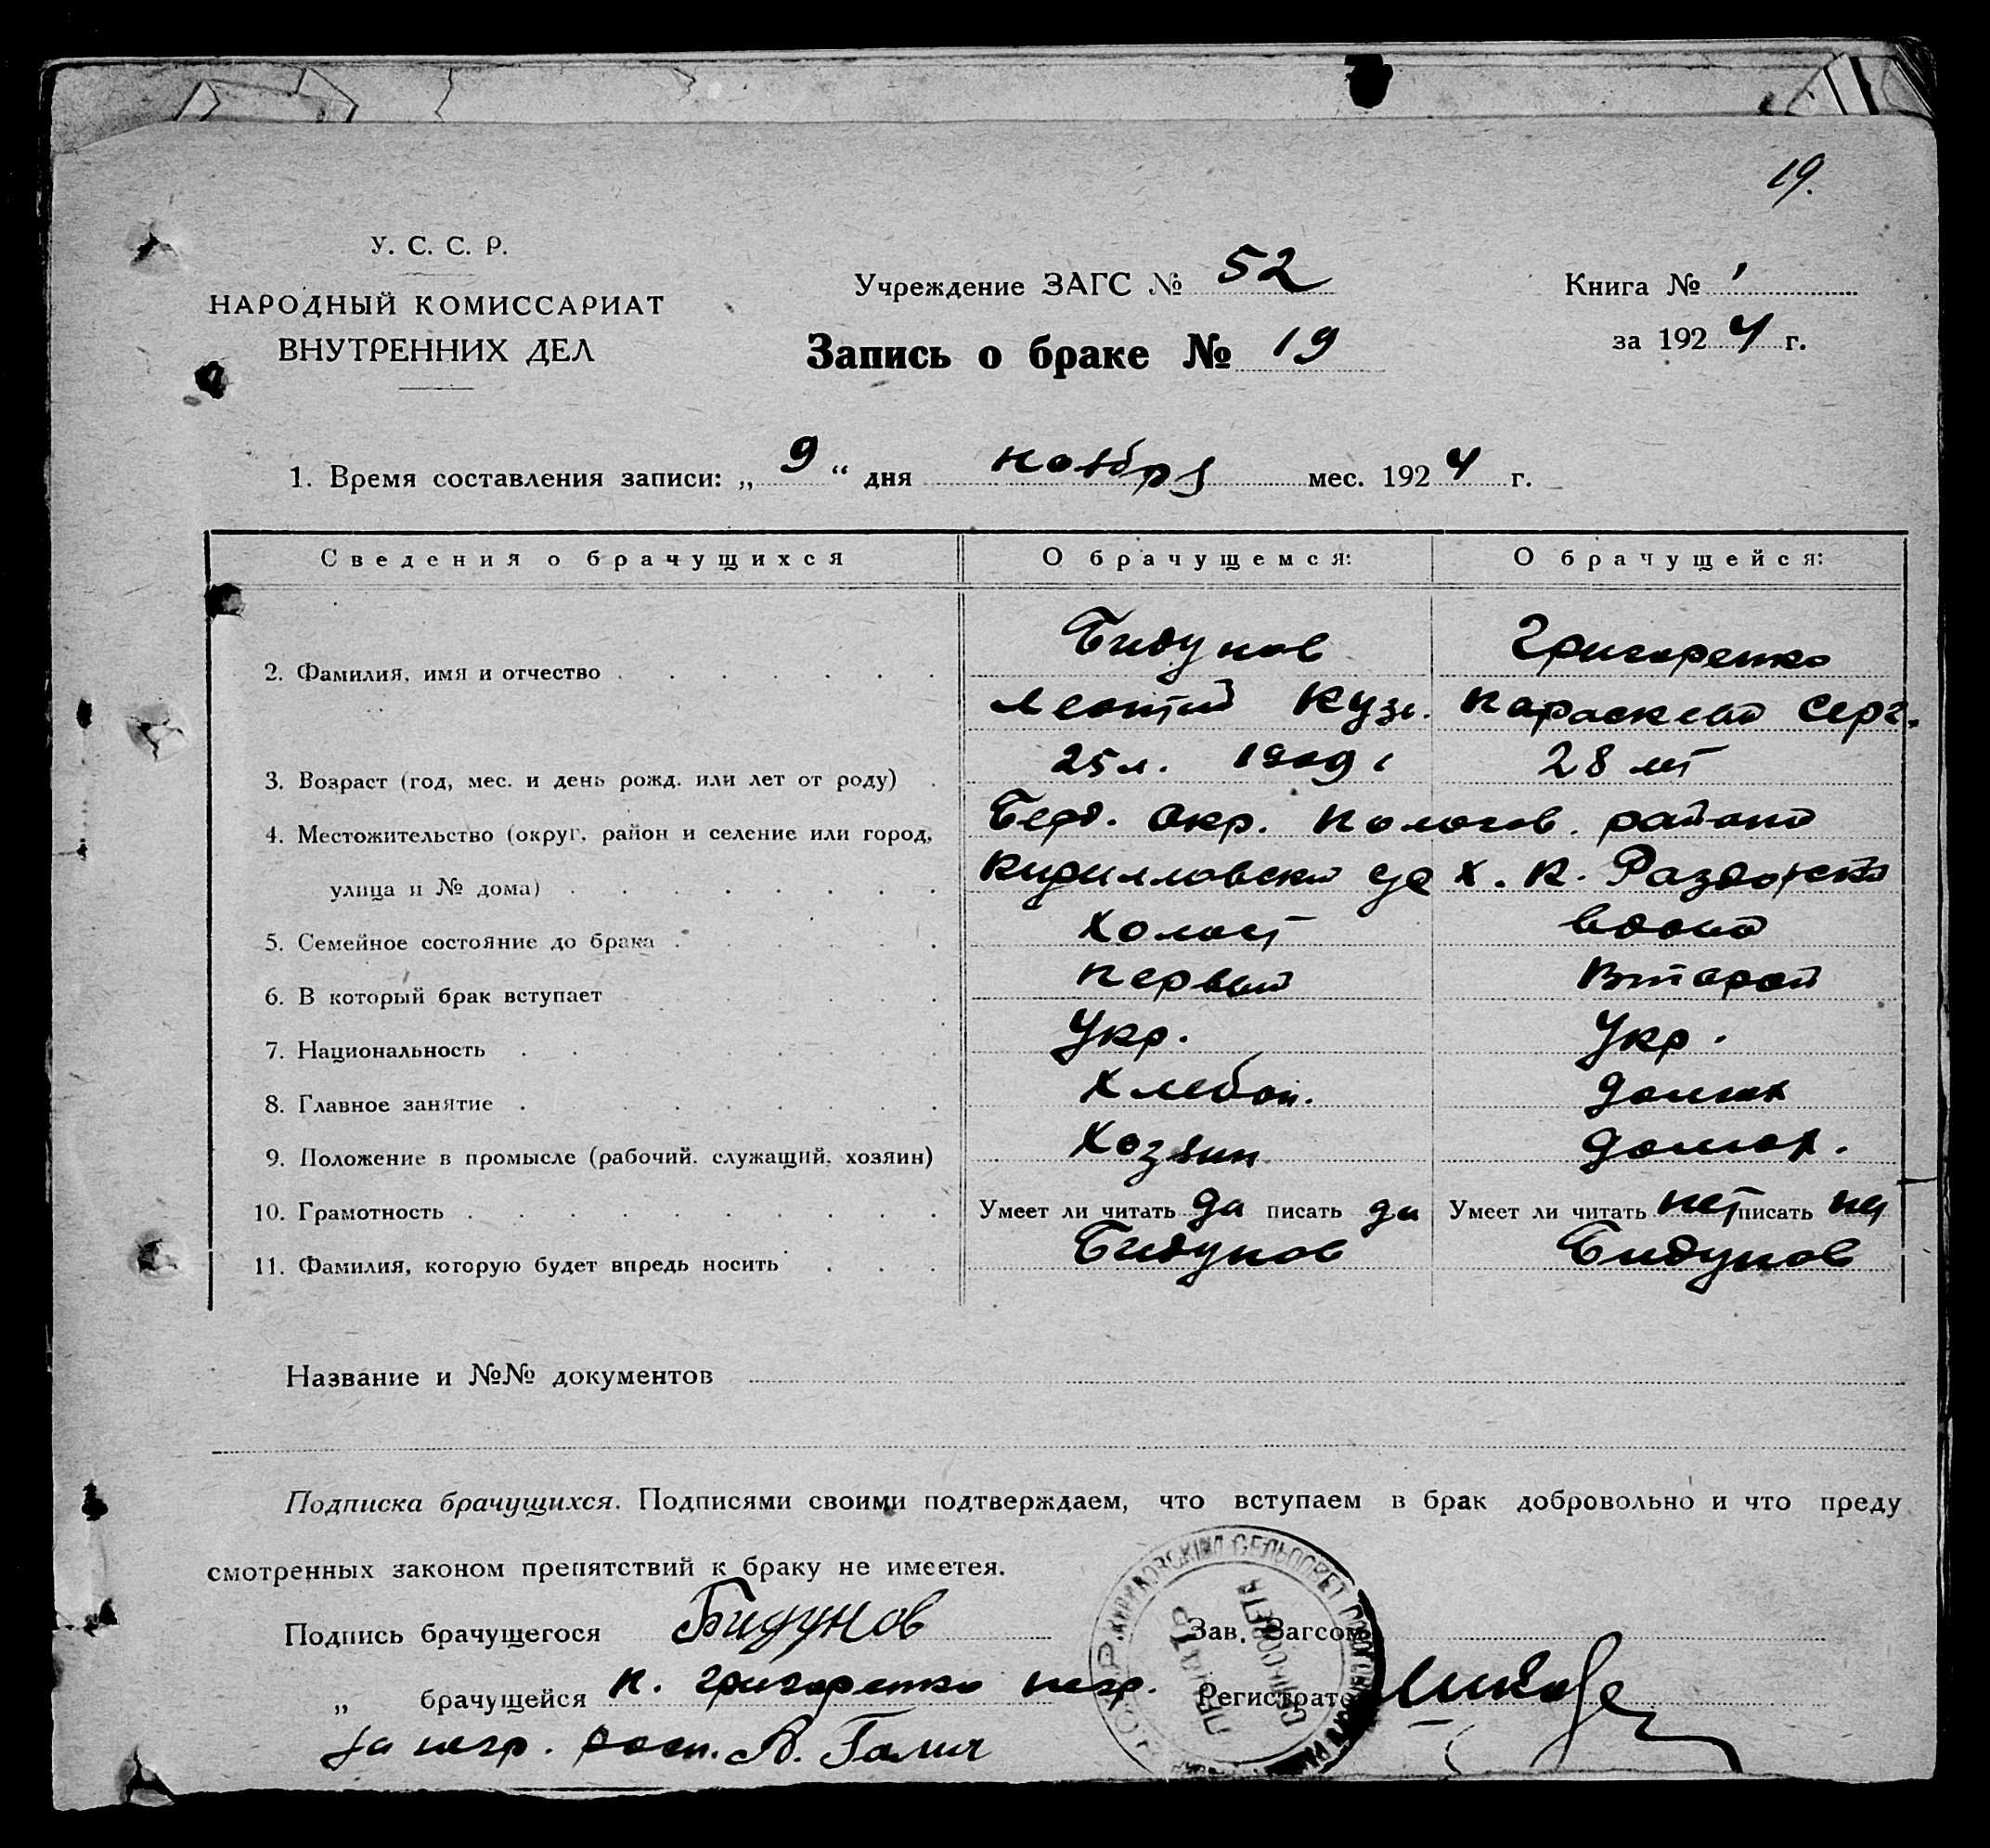 19.
У. С. С. Р.
НАРОДНЫЙ КОМИССАРИАТ
ВНУТРЕННИХ ДЕЛ
Учреждение ЗАГС № 52
Запись о браке № 19
Книга № 1
за 1924 г.
1. Время составления записи: „ 9 “ дня ноября мес. 1924 г.
Сведения о брачущихся О брачущемся: О брачущейся:
Бидунов Григоренко
2. Фамилия, имя и отчество
Леонтий Кузь. Параскева Серг.
3. Возраст (год, мес. и день рожд. или лет от роду) 25 л. 28 лет
4. Местожительство (округ, район и селение или город, Берд. Окр. Пологов. района
улица и № дома) Кирилловский х. К. Раздорский
5. Семейное состояние до брака холост вдова
6. В который брак вступает первый Второй
7. Национальность Укр. Укр.
8. Главное занятие Хлебоп. домох
9. Положение в промысле (рабочий, служащий, хозяин) Хозяин домох.
10. Грамотность Умеет ли читать да писать да Умеет ли читать нет писать нет
11. Фамилия, которую будет впредь носить Бидунов Бидунов
Название и №№ документов
Подписка брачущихся. Подписями своими подтверждаем, что вступаем в брак добровольно и что преду
смотренных законом препятствий к браку не имеетея.
Подпись брачущегося Бидунов Зав. Загсом
„ брачущейся П. Григоренко негр. Регистрато
За негр. росп. А. Галич